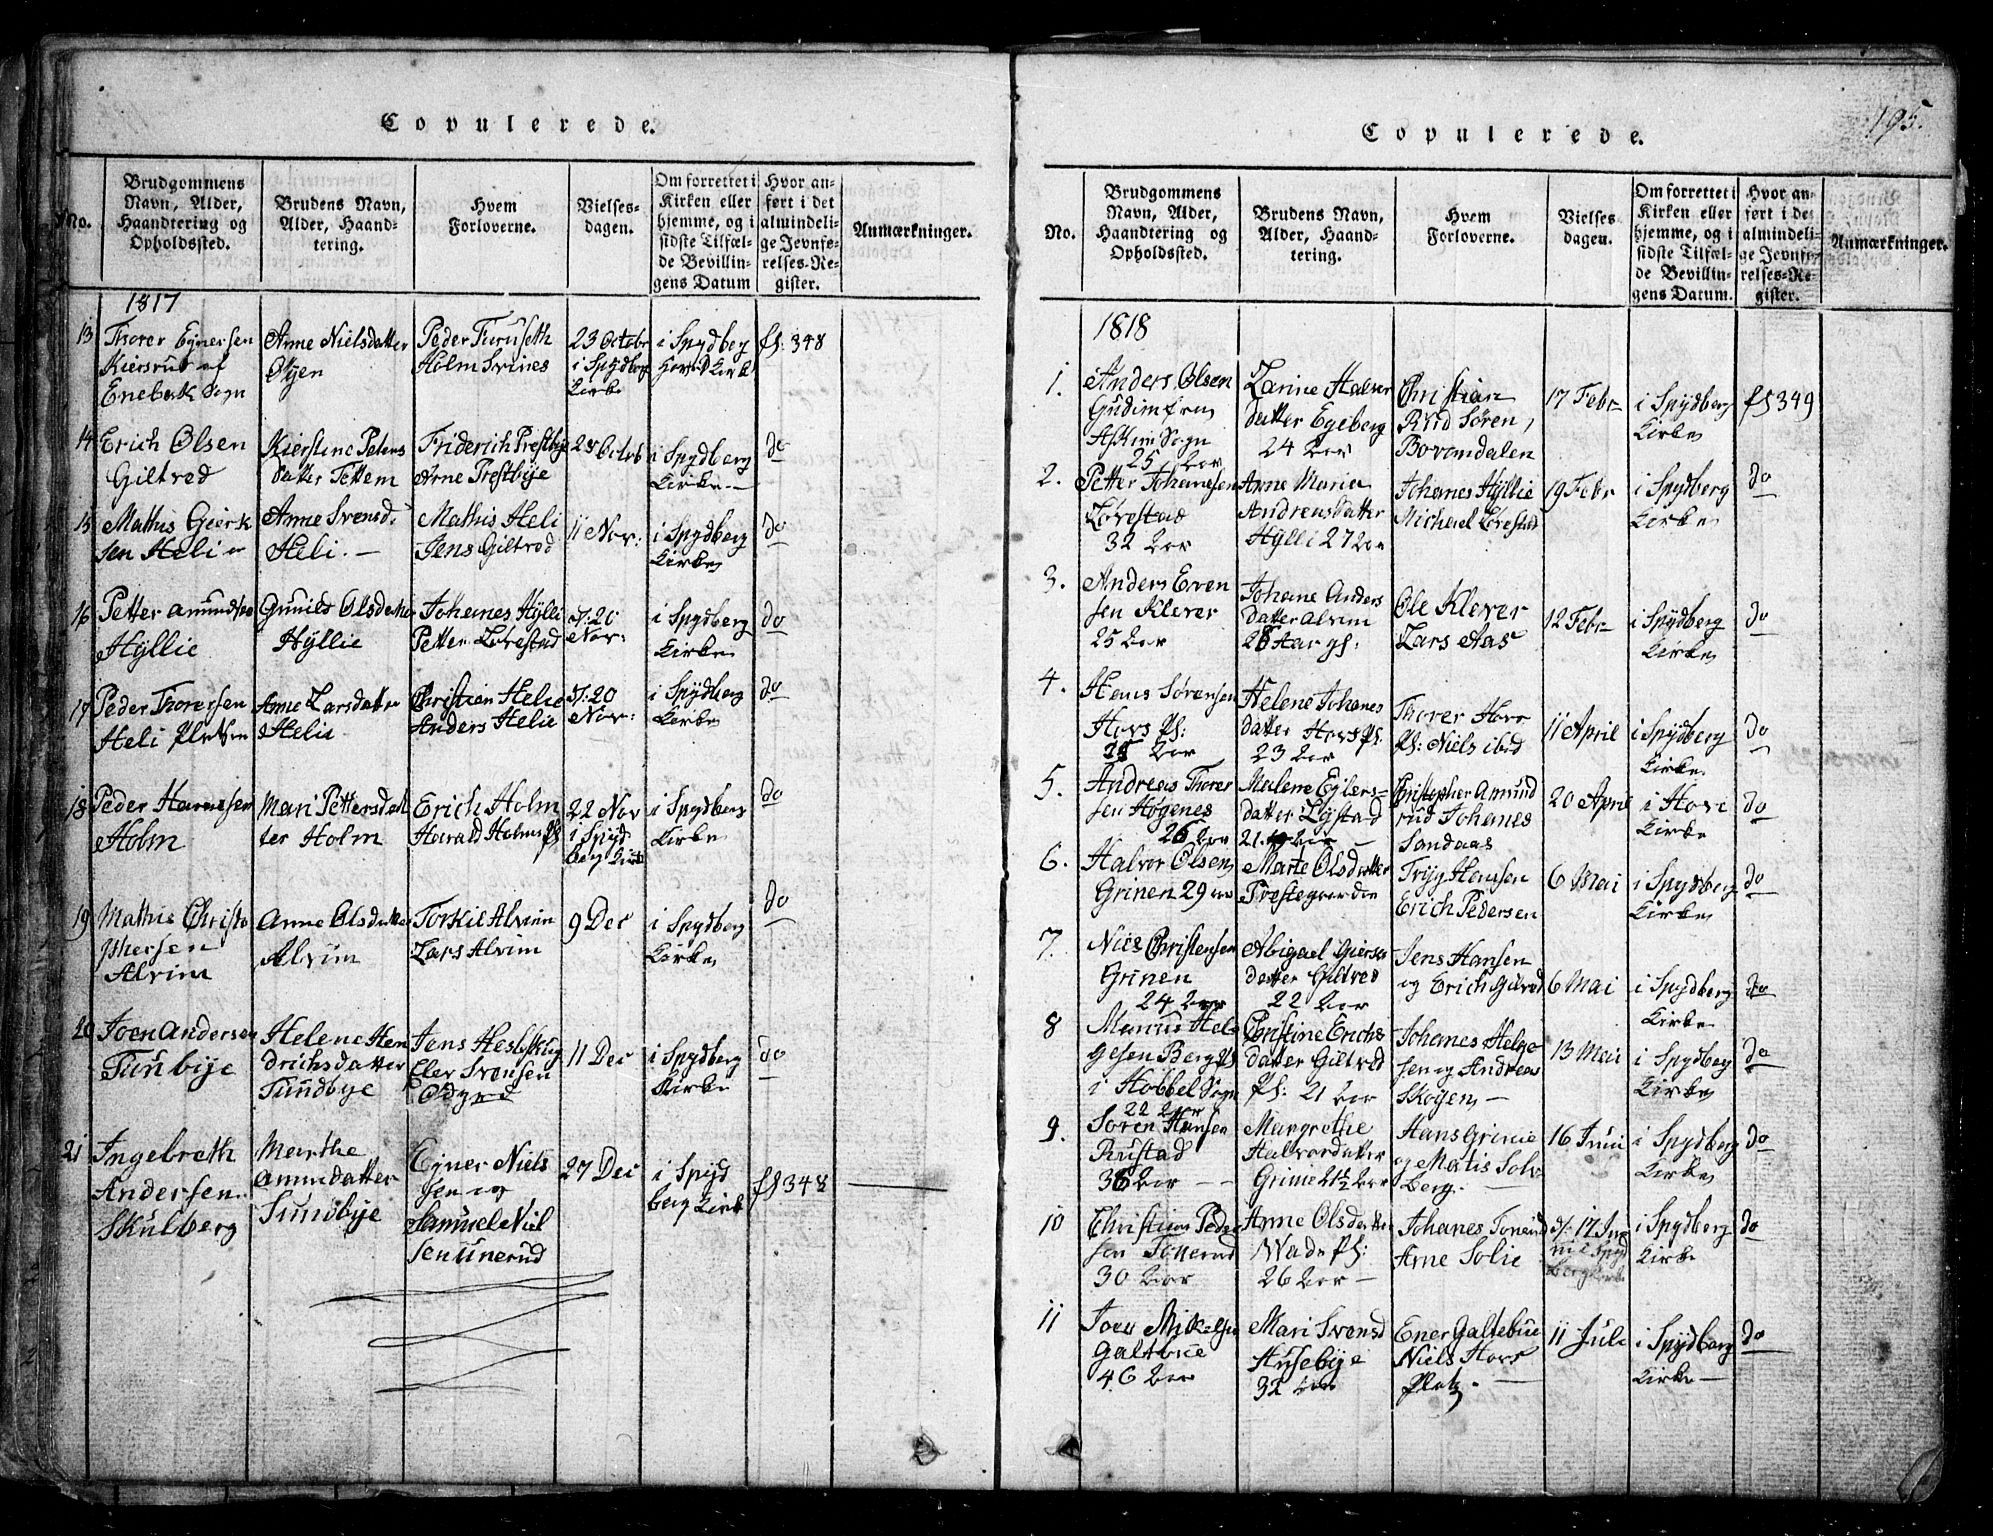 Copulerede.
No.
Brudgommens
Navn, Alder,
Haandtering og
Opholdssted.
Brudens Navn,
Alder, Haand-
tering.
Hvem
Forloverne.
Vielses-
dagen.
Om forrettet i
Kirken eller
hjemme, og i
sidste Tilfæl-
de Bevillin-
gens Datum
Hvor an-
ført i det
almindeli-
ge Jevnfø-
relses-Re-
gister.
Anmærkninger.
1817
13
Thorer Ejnersen
Kiersrud af
Enebak Sogn
Anne Nielsdatter
Øijen
Peder Furuseth
Holm Svines
23 Octobr
i Spydberg
Kirke
i Spydberg
Hoved Kirke
fs: 348
14
Erich Olsen
Giltred
Kierstine Peters
datter Tettem
Friderich Prestbye
Arne Prestbÿe
28 Octob
i Spydberg
Kirke
do
15
Mathis Gierk
sen Heli
Anne Svensd:
Heli. —
Mathis Heli
Jens Giltred
11 Nov:
i Spydberg
Kirke
do
16
Petter Amundsen
Hÿllie
Gunild Olsdatter
Hÿllie
Johanes Hÿlli
Petter Løvestad
d: 20
Nov:
i Spydberg
Kirke
do
17
Peder Thorersen
Heli Pladsen
Anne Larsdatter
Helie
Christian Helie
Anders Helie
d: 20
Nov:
i Spÿdberg
Kirke
do
18
Peder Hansen
Holm
Mari Pettersdat
ter Holm
Erich Holm
Harald Holms Ps
22 Nov
i Spÿd
berg Kirke
i Spÿdberg
Kirke
do
19
Mathis Christo
phersen
Alvim
Anne Olsdatter
Alvim
Torkil Alvim
Lars Alvim
9 Dec
i Spydberg
Kirke
do
20
Joen Andersen
Tunbÿe
Helene Hen
drichsdatter
Tundbÿe
Jens Heslskug
Elev Svensen
Odgred
11 Dec
i Spÿdberg
Kirke
do
21
Ingebreth
Andersen
Skulberg
Marthe
Amundatter
Sundbÿe
Ejner Niels
sen og
Samuel Niel
sen unerud
27 Dec
i Spÿd
berg Kirk
fs 348
195.
Copulerede.
No.
Brudgommens
Navn, Alder,
Haandtering og
Opholdssted.
Brudens Navn,
Alder, Haand-
tering.
Hvem
Forloverne.
Vielses
dagen.
Om forrettet i
Kirken eller
hjemme, og i
sidste Tilfæl-
de Bevillin-
gens Datum.
Hvor an-
ført i det
almindeli-
ge Jevnfø-
relses-Re-
gister.
Anmærkninger.
1818
1.
Anders Olsen
Gudim fra
Askim Sogn
25 aar
Larine Halvor
datter Egeberg
24 aar
Christian
Rud Søren,
Bovamdalen
17 Febr
i Spÿdberg
Kirke
fs 349
2.
Petter Johanesen
Løvestad
32 aar
Anne Maria
Andreasdatter
Hÿlli 27 aar
Johanes Hÿllie
Michael Løvestad
19 Febr
i Spÿdberg
Kirke
do
3.
Anders Even
sen Klever
25 aar
Johane Anders
datter Alvim
28 aar gl:
Ole Klever
Lars Aas
12 Febr
i Spÿdberg
Kirke
do
4.
Hans Sørensen
Hovs Ps:
25 aar
Helene Johanes
datter Hovs Ps:
23 aar
Thorer Hovs
Ps: Niels ibid
11 April
i Spÿdberg
Kirke
do
5.
Andreas Thorer
sen Høgenes
26 aar
Malene Ejlers-
datter Løjstad
21 aar —
Christopher Amund
rud Johanes
Sandaas
20 April
i Hove
Kirke
do
6.
Halvor Olsen
Grinen 29 aar
Marte Olsdatter
Prestegaarden
Trÿg Hansen
Erich Pedersen
6 Mai
i Spÿdberg
Kirke
do
7.
Niels Christensen
Grinen
24 aar
Abigael Giers
datter Giltved
22 aar
Jens Hansen
og Erich Gilved
6 Mai
i Spÿdberg
Kirke
do
8
Marius Hel
gesen Bergs Ps
i Hobbel Sogn
22 aar
Christine Erichs
datter Giltved
Ps: 21 aar
Johanes Helge
sen og Andreas
Skøÿen —
13 Mai
i Spÿdberg
Kirke
do
9.
Søren Hansen
Rustad
36 aar —
Margrethe
Halvordatter
Grinie 21½ aar
Hans Grinie
og Matis Solv
berg. —
16 Juni
i Spÿdberg
Kirke
do
10
Christian Peder
sen Tonerud
30 aar
Anne Olsdatter
Wads Ps:
26 aar —
Johanes Tonerud
Arne Solie
d: 17 Ju
ni i Spÿd
berg Kirke
i Spÿdberg
Kirke
do
11
Joen Mikelsen
Galtbue
46 aar
Mari Svensd
Husebÿe
32 aar
Ener Galtebue
Niels Hovs
Platz. —
11 Juli
i Spÿdberg
Kirke —
do